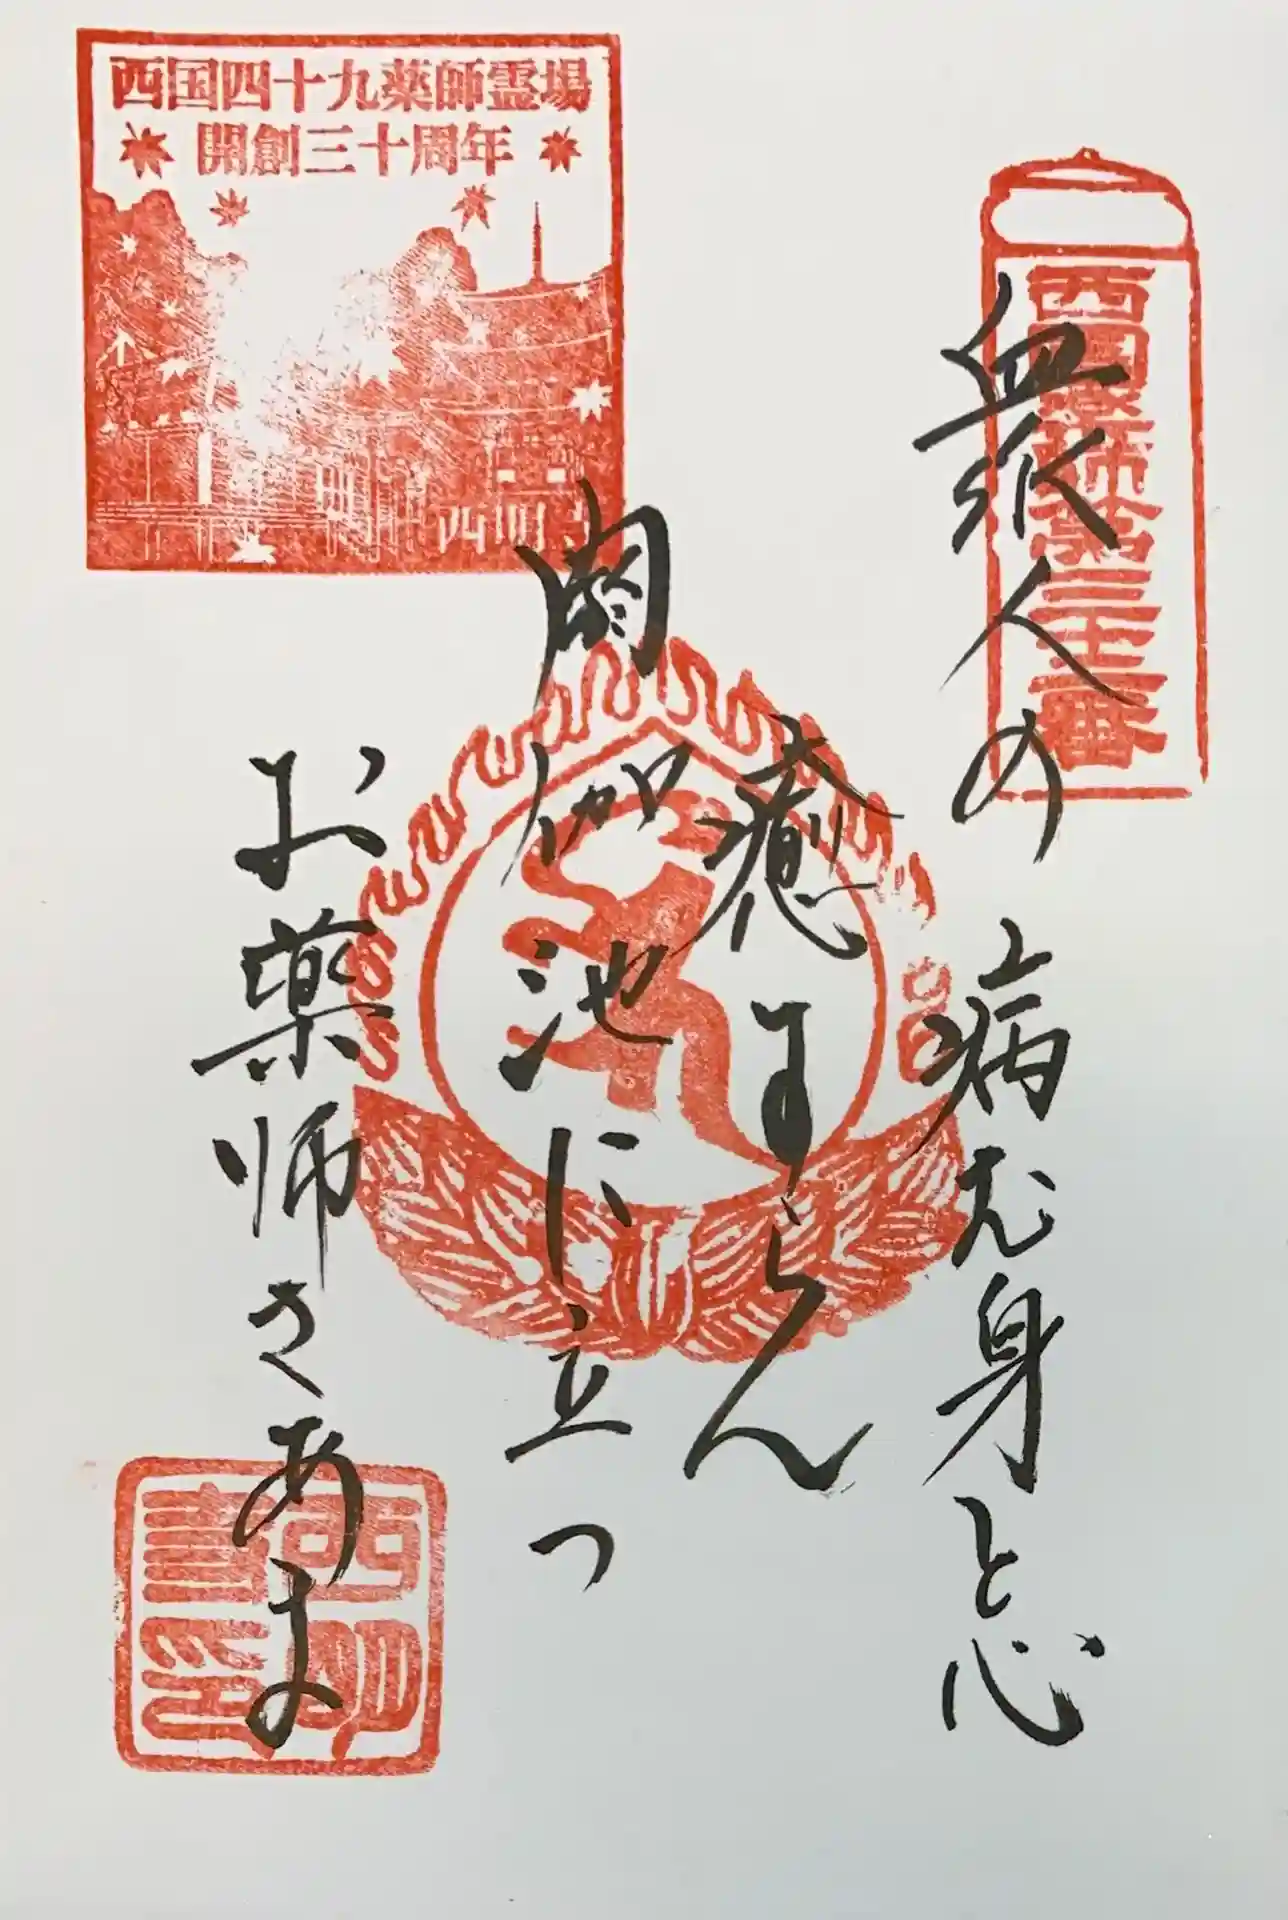 西国四十九薬師霊場
開創三十周年
西明寺
西国薬師第三十二番
衆人の 病む身と心
癒すらん
閼伽池に立つ
お薬師さあま
西明
寺印